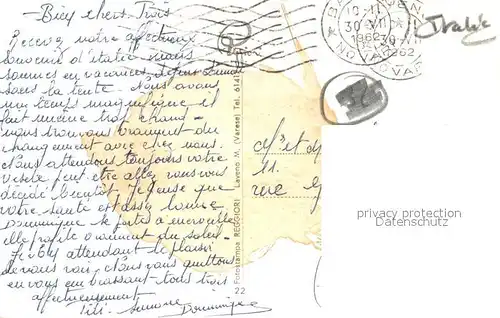 - Bien chers Trois
Recevez notre affectueux
souvenir d'Italie nous
sommes en vacances depuis Lundi
sous la tente. Nous avons
un temps magnifique il
fait même trop chaud -
nous trouvons vraiment du
changement avec chez nous.
Nous attendons toujours votre
visite peut être allez vous vous
décider bientôt. Je pense que
votre santé est assez bonne
Dominique se porte à merveille
elle profite vraiment du soleil
attendant le plaisir
de vous voir. Nous vous quittons
en vous embrassant tous trois
affectueusement
Titi - Simone Dominique
Italie
30 VII
1962
NOVARA
Mr et
11
rue
Fotostampa REGGIORI - Laveno M. (Varese) Tel. 614
22
privacy protection